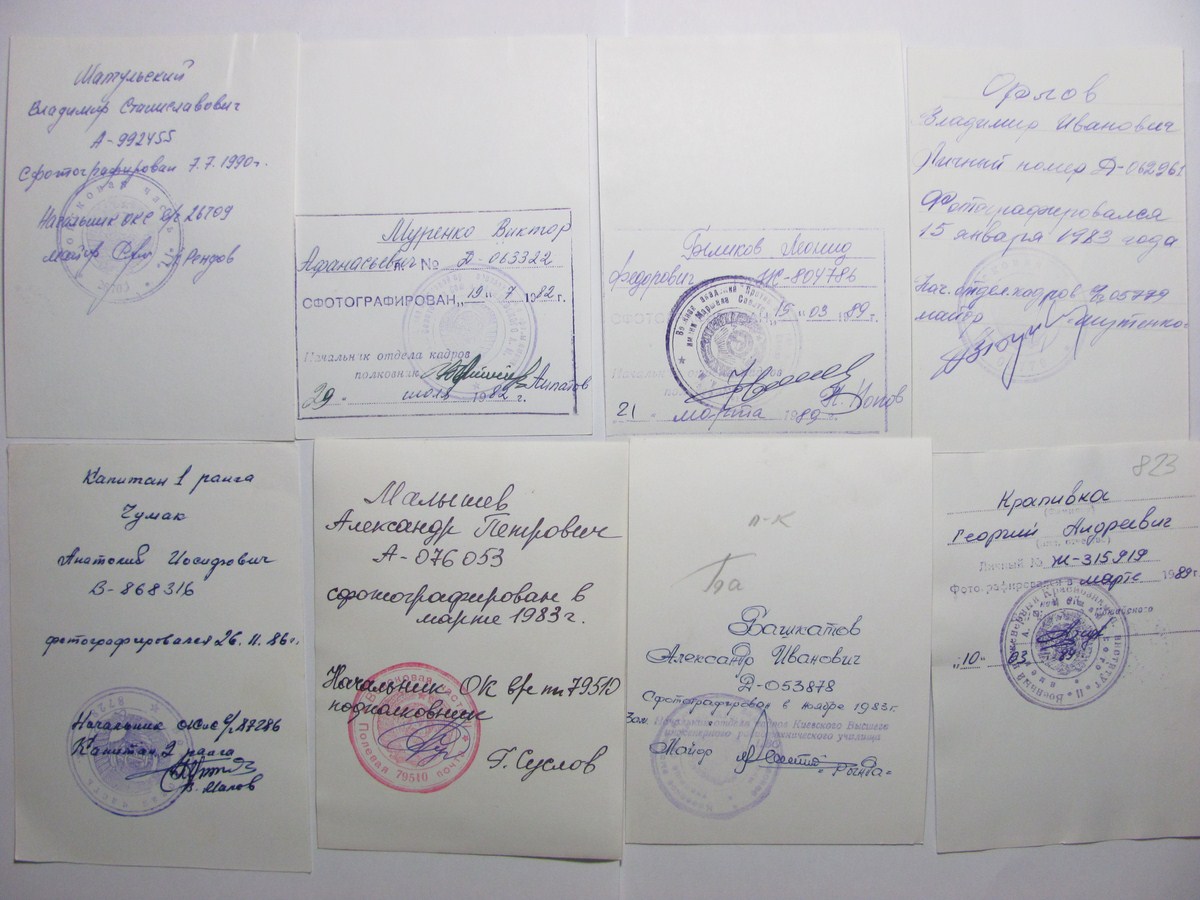 Матульский
Владимир Станиславович
А-992455
Сфотографирован 7.7.1990г.
Начальник ОКС в/ч 26709
майор Рондов
Муренко Виктор
Афанасьевич № Д-063322
СФОТОГРАФИРОВАН „19" 7 1982 г.
Начальник отдела кадров
полковник Липатов
29 июля 1982 г.
Беликов Леонид
Федорович Ж-804786
СФОТОГРАФИРОВАН „15" 03 1989г.
Начальник отдела кадров
Попов
21 марта 1989г.
Орлов
Владимир Иванович
Личный номер Д-062961
Фотографировался
15 января 1983 года
Нач. отдел. кадров 05779
майор
Капитан 1 ранга
Чумак
Анатолий Иосифович
В-868316
фотографировался 26.11.86г.
Начальник ОКиС в/ч 87286
Капитан 2 ранга
В. Малов
Малышев
Александр Петрович
А-076053
сфотографирован в
марте 1983г.
Начальник ОК вч пп 79510
подполковник
Полевая почта 79510
Г. Суслов
п-к
Башкатов
Александр Иванович
Д-053878
Сфотографирован в ноябре 1983г.
Зам. Начальника отдела кадров Киевского Высшего
инженерно радиотехнического училища
Майор
823
Крапивка
(фамилия)
Георгий Андреевич
Личный № Ж-315919
Фотографировался в марте 1989г.
„10" 03 89